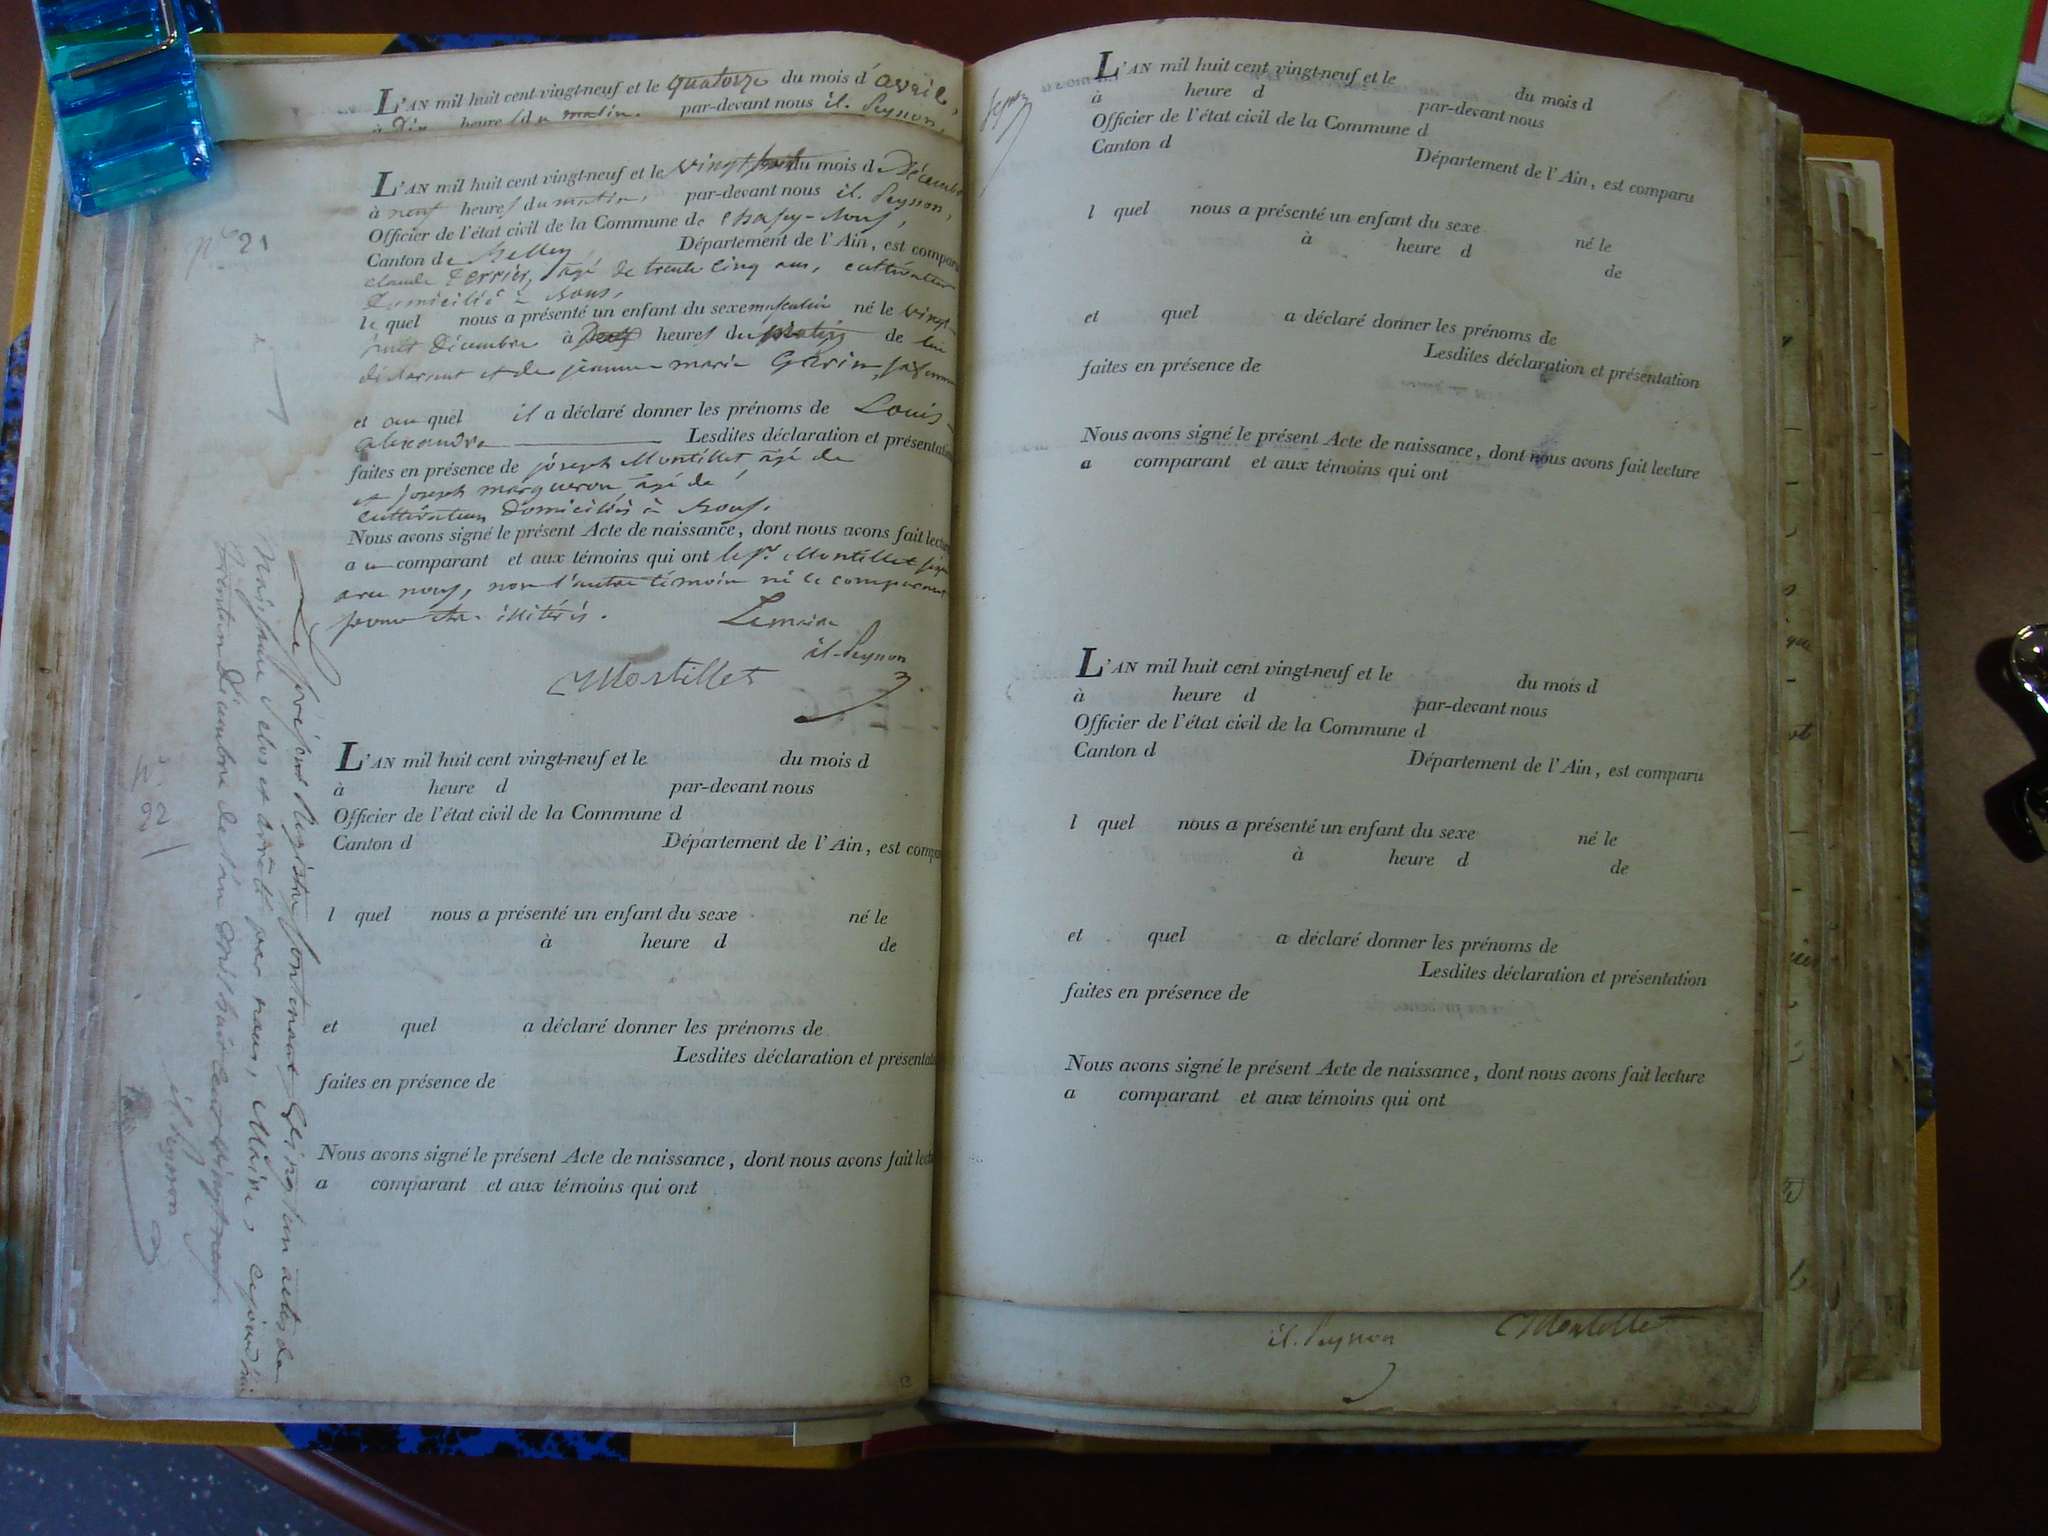 L'AN mil huit cent vingt-neuf et le quatorze du mois d'avril,
à Dix heures du matin. par-devant nous il. Peysson,
L'AN mil huit cent vingt-neuf et le vingt huit du mois d Décembre
à neuf heures du matin, par-devant nous il. Peysson,
Officier de l'état civil de la Commune de
Canton de Belley Département de l'Ain, est comparu
claude Perrier, âgé de trente cinq ans, cultivateur
Domicilié à
le quel nous a présenté un enfant du sexe masculin né le vingt
huit Décembre à heures du matin de lui
déclarant et de jeanne marie sa femme
et au quel il a déclaré donner les prénoms de Louis
alexandre Lesdites déclaration et présentation
faites en présence de joseph Montillet âgé de
et joseph marqueron âgé de
cultivateurs Domiciliés à
Nous avons signé le présent Acte de naissance, dont nous avons fait lecture
au comparant et aux témoins qui ont le Sr. Montillet signé
avec nous, non l'autre témoin ni le comparant
pour être illitérés.
Le maire
il. Peysson
Montillet
L'AN mil huit cent vingt-neuf et le du mois d
à heure d par-devant nous
Officier de l'état civil de la Commune d
Canton d Département de l'Ain, est comparu
l quel nous a présenté un enfant du sexe né le
à heure d de
et quel a déclaré donner les prénoms de
Lesdites déclaration et présentation
faites en présence de
Nous avons signé le présent Acte de naissance, dont nous avons fait lecture
a comparant et aux témoins qui ont
Le présent Registre contenant vingt un actes de
Naissance clos et arrêté par nous, Maire, cejourd'hui
trente un Décembre de l'an mil huit cent vingt neuf.
il Peysson
L'AN mil huit cent vingt-neuf et le du mois d
à heure d par-devant nous
Officier de l'état civil de la Commune d
Canton d Département de l'Ain, est comparu
l quel nous a présenté un enfant du sexe né le
à heure d de
et quel a déclaré donner les prénoms de
Lesdites déclaration et présentation
faites en présence de
Nous avons signé le présent Acte de naissance, dont nous avons fait lecture
a comparant et aux témoins qui ont
L'AN mil huit cent vingt-neuf et le du mois d
à heure d par-devant nous
Officier de l'état civil de la Commune d
Canton d Département de l'Ain, est comparu
l quel nous a présenté un enfant du sexe né le
à heure d de
et quel a déclaré donner les prénoms de
Lesdites déclaration et présentation
faites en présence de
Nous avons signé le présent Acte de naissance, dont nous avons fait lecture
a comparant et aux témoins qui ont
il. Peysson Montillet